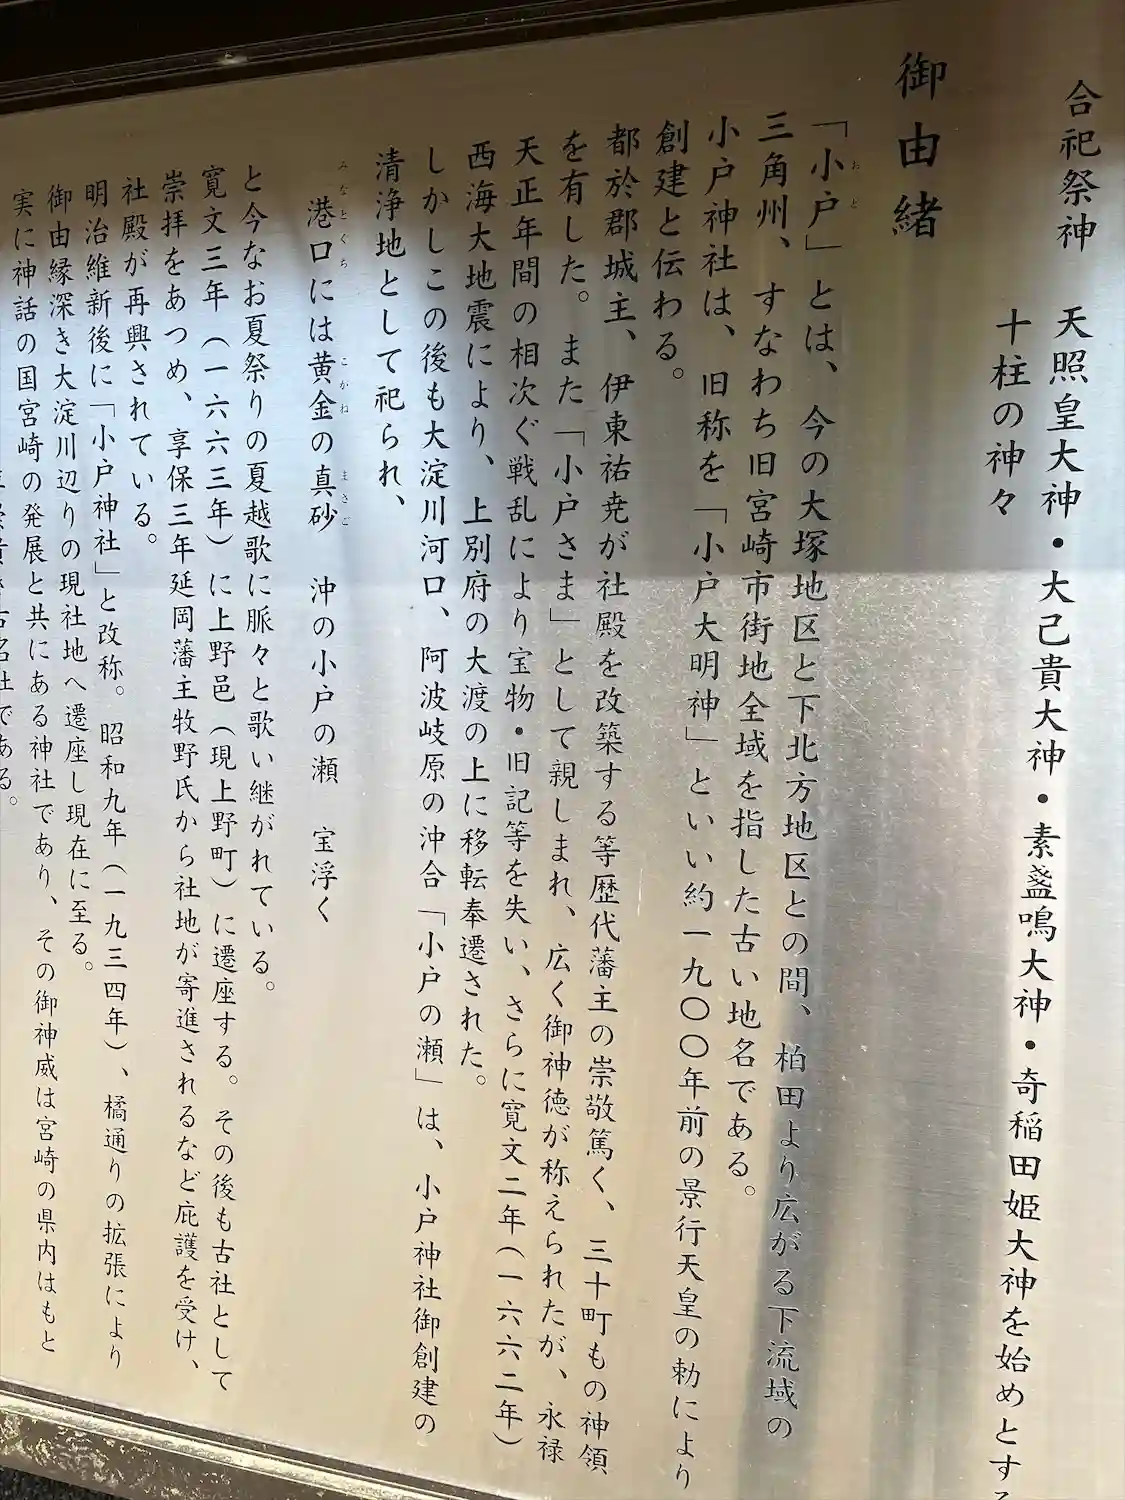 合祀祭神　天照皇大神・大己貴大神・素盞鳴大神・奇稲田姫大神を始めとする
十柱の神々
御由緒
「小戸」とは、今の大塚地区と下北方地区との間、柏田より広がる下流域の
三角州、すなわち旧宮崎市街地全域を指した古い地名である。
小戸神社は、旧称を「小戸大明神」といい約一九〇〇年前の景行天皇の勅により
創建と伝わる。
都於郡城主、伊東祐尭が社殿を改築する等歴代藩主の崇敬篤く、三十町もの神領
を有した。また「小戸さま」として親しまれ、広く御神徳が称えられたが、永禄
天正年間の相次ぐ戦乱により宝物・旧記等を失い、さらに寛文二年(一六六二年)
西海大地震により、上別府の大渡の上に移転奉遷された。
しかしこの後も大淀川河口、阿波岐原の沖合「小戸の瀬」は、小戸神社御創建の
清浄地として祀られ、
港口には黄金の真砂　沖の小戸の瀬　宝浮く
と今なお夏祭りの夏越歌に脈々と歌い継がれている。
寛文三年(一六六三年)に上野邑(現上野町)に遷座する。その後も古社として
崇拝をあつめ、享保三年延岡藩主牧野氏から社地が寄進されるなど庇護を受け、
社殿が再興されている。
明治維新後に「小戸神社」と改称。昭和九年(一九三四年)、橘通りの拡張により
御由縁深き大淀川辺りの現社地へ遷座し現在に至る。
実に神話の国宮崎の発展と共にある神社であり、その御神威は宮崎の県内はもと
古名社である。